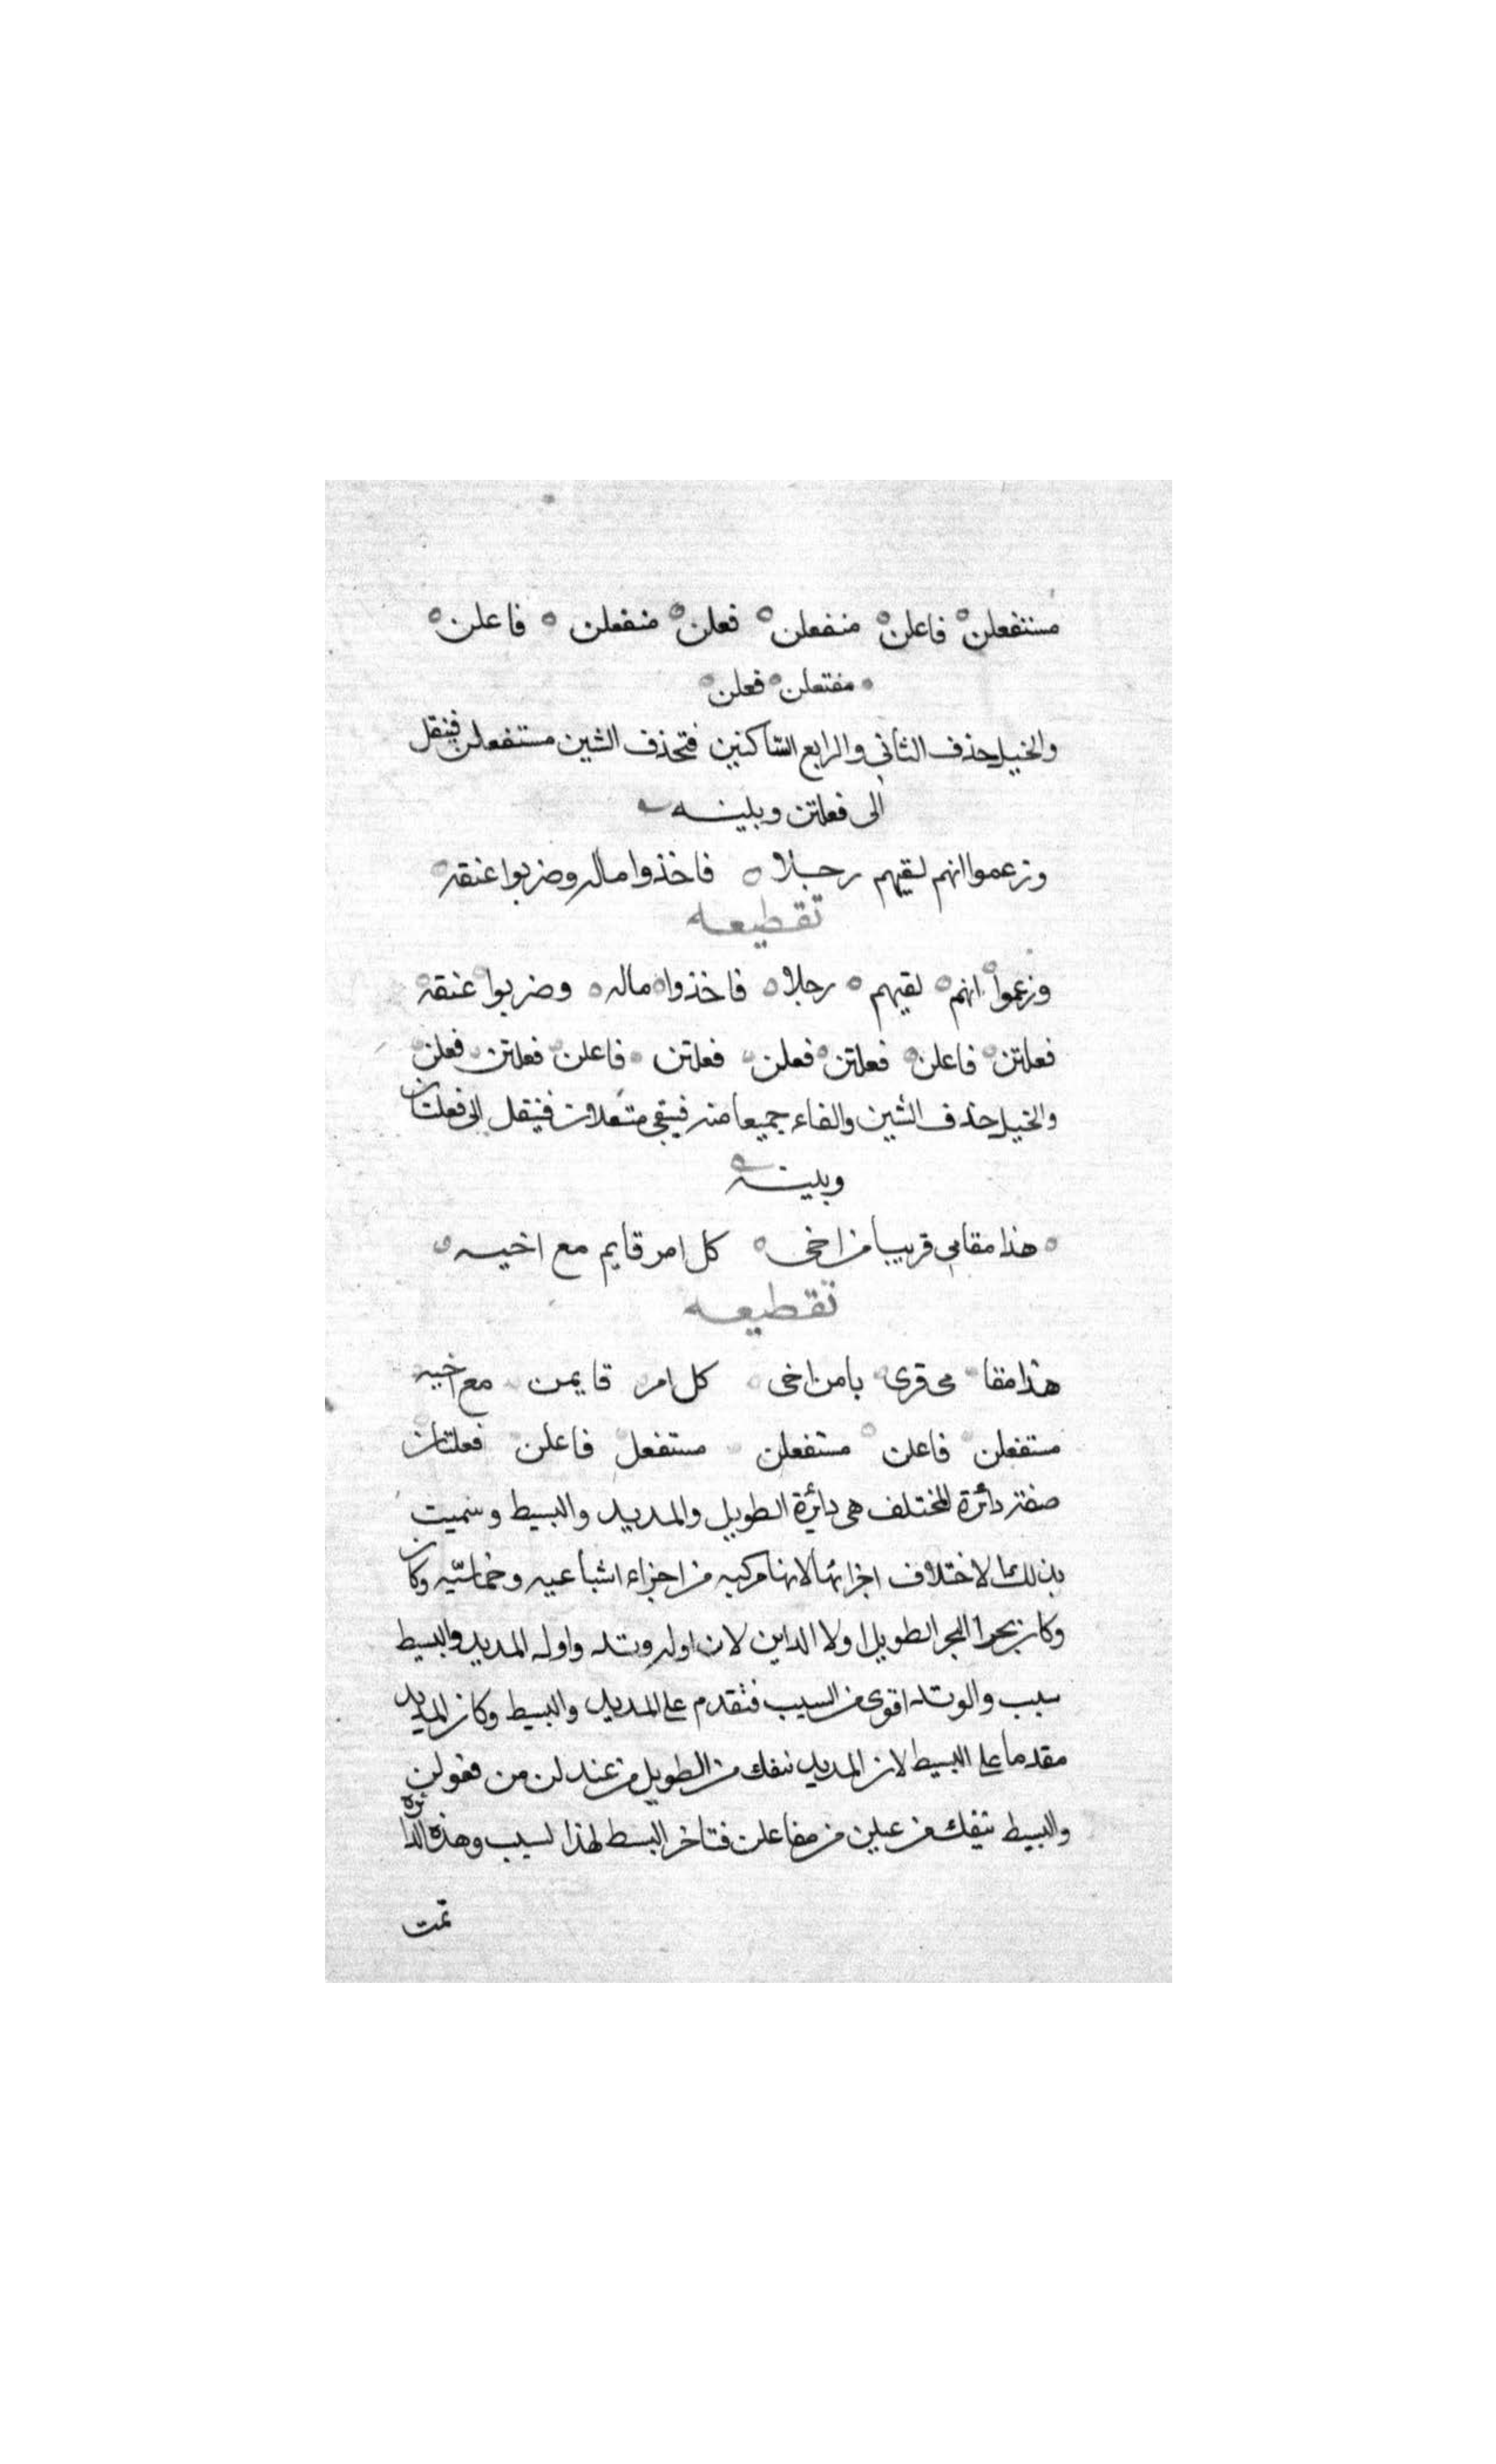 مستفعلن ه فاعلن ه متفعلن ه فعلن ه متفعلن ه فاعلن ه
ه مفتعلن ه فعلن ه
والخبل حذف الثاني والرابع الساكنين فتحذف الشين مستفعلن فينقل
الى فعلتن وبيته
وزعموا انهم لقيهم رجلا ه فاخذوا ماله وضربوا عنقه ه
تقطيعه
وزعموا ه انهم ه لقيهم ه رجلا ه فاخذوا ه ماله ه وضربوا ه عنقه ه
فعلتن ه فاعلن ه فعلتن ه فعلن ه فعلتن ه فاعلن ه فعلتن ه فعلن
والخبل حذف الشين والفاء جميعا منه فيبقى متعلان فينقل الى فعلتان
وبيته ه
ه هذا مقامي قريبا من اخي ه كل امر قايم مع اخيه ه
تقطيعه
هذا مقا ه مي قري ه بامن اخي ه كل امر ه قايمن ه مع اخيه
مستفعلن ه فاعلن ه مستفعلن ه مستفعل ه فاعلن ه فعلتان
صفة دائرة المختلف هي دائرة الطويل والمديد والبسيط وسميت
بذلك لاختلاف اجزائها لانها مركبه من اجزاء اشباعيه وخماسيّه وكان
وكان بحر البحر الطويل اولا الداين لان اوله وتد واوله المديد والبسيط
سبب والوتد اقوى من السبب فتقدم على المديد والبسيط وكان المديد
مقدما على البسيط لان المديد ينفك من الطويل من عند لن من فعولن
والبسيط ينفك من عيلن من مفاعلن فتاخر البسط لهذا لسبب وهذه الدائرة
تمت